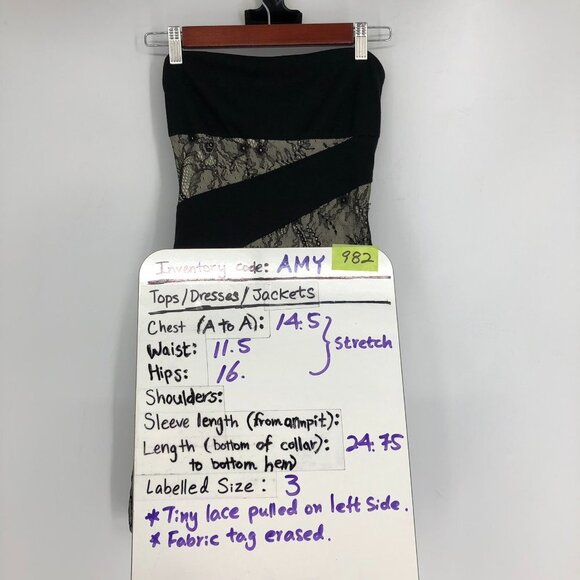 Inventory code: AMY 982
Tops/Dresses/Jackets
Chest (A to A): 14.5
Waist: 11.5
Stretch
Hips: 16.
Shoulders:
Sleeve length (from armpit):
Length (bottom of collar): 24.75
to bottom hem)
Labelled Size: 3
* Tiny lace pulled on left side.
* Fabric tag erased.